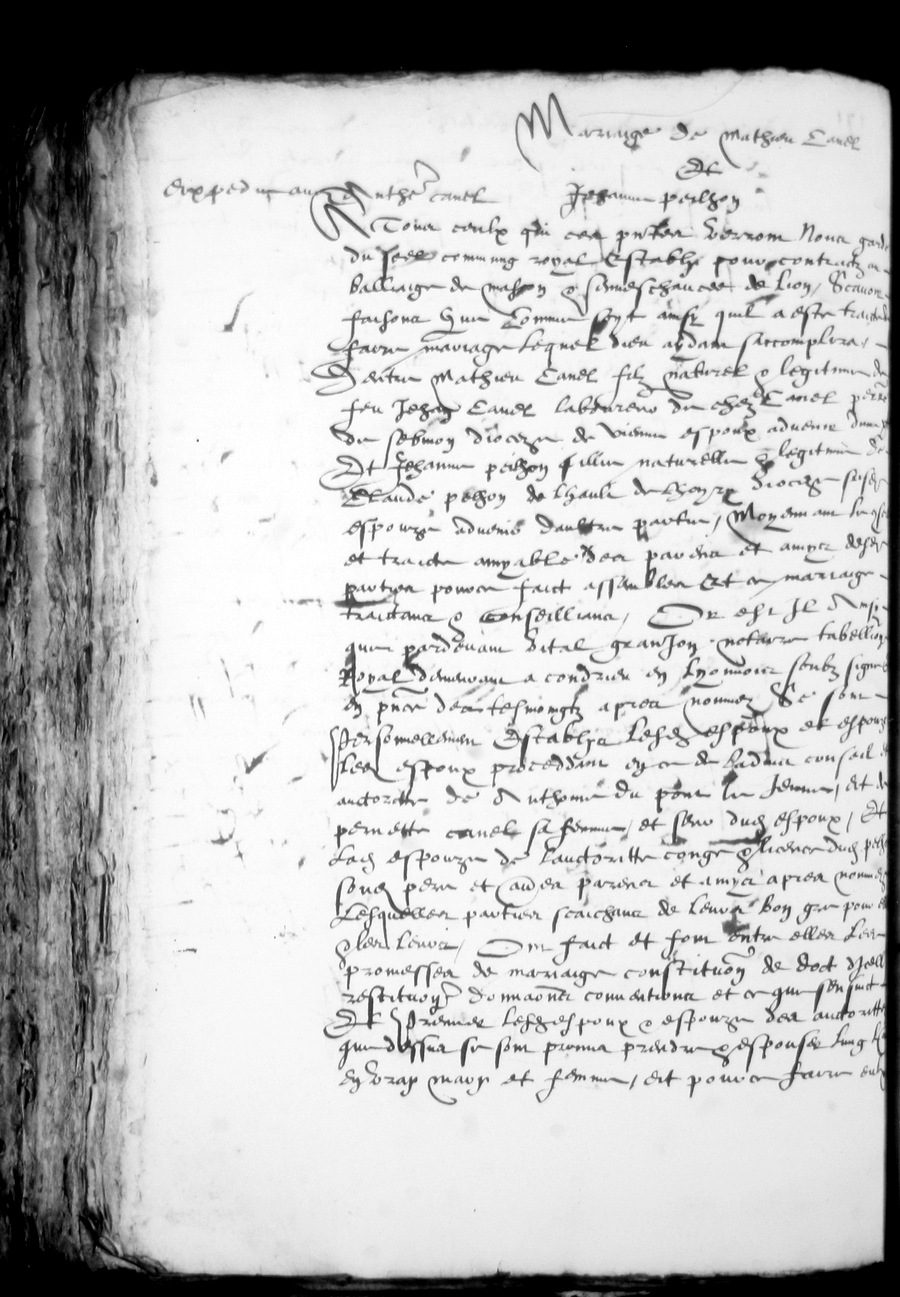 Mariaige de Mathieu Canel
Et
Jehanne peilhon
expedie au Anthe canel
A Tous ceulx qui ces pntes verront Nous garde
du seel commung royal Establi pour contractz au
bailiaige de mascon & seneschaucee de lion, Scavoir
faisons Que Comme soyt ainsy quil a este traicte
faire mariage lequel dieu aydant saccomplira,
Dentre Mathieu Canel filz naturel & legitime de
feu Jehan Canel laboureur de chez Canel
de diocese de vienne espoux advenir dune
Et Jehanne peilhon fillie naturelle & legitime de
Claude peilhon de diocese
espouze advenir daultre partie, Moyennant le
et traicte amyable des parens et amys desd
parties pource faict assembler Et ce mariaige
traictans & Conseillians, Or est Il Ainsi
que pardevant Vital granjon notaire tabellion
Royal demeurant a condrieu en lyonnois soubz signe
en pnce des tesmoingtz apres nommez Se sont
personnellement Establys lesd espoux et espouze
led espoux proceddant en ce de ladvis conseil et
auctorite de Anthoine du pont le Jeune, et de
pernette canel sa femme, et seur dud espoux, Et
Lad espouze de lauctoritte conge & licence dud
soud pere et aultres parens et amys apres nommez
Lesquelles parties scaichans de leurs bon gre pour
& les leurs, Ont faict et font entre elles Les
promesses de mariaige constitution de dot
restitution donnaons conventions et ce que sensuict
Et Premier lesd espoux & espouze des auctorittes
que dessus se sont promis prendre & espouser lung
en vray mary et femme, et pource faire